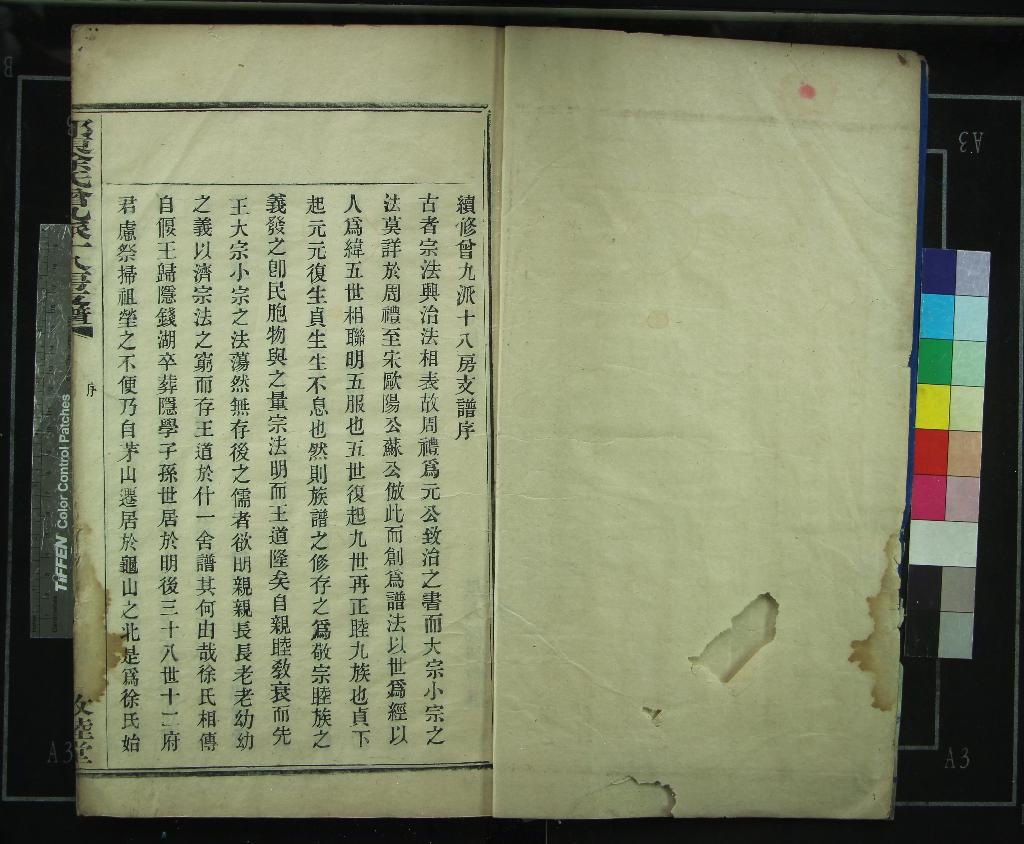 續修曾九派十八房支譜序
古者宗法興治法相表故周禮爲元公致治之書而大宗小宗之
法莫詳於周禮至宋歐陽公蘇公倣此而創爲譜法以世爲經以
人爲緯五世相聯明五服也五世復起九世再正睦九族也貞下
起元元復生貞生生不息也然則族譜之修存之爲敬宗睦族之
義發之卽民胞物與之量宗法明而王道隆矣自親睦教衰而先
王大宗小宗之法蕩然無存後之儒者欲明親親長長老老幼幼
之義以濟宗法之窮而存王道於什一舍譜其何由哉徐氏相傳
自偃王歸隱錢湖卒葬隱學子孫世居於明後三十八世十二府
君慮祭掃祖塋之不便乃自茅山遷居於龜山之北是爲徐氏始
序
敦睦堂
TIFFEN Color Control Patches
A3
A3
A3
B